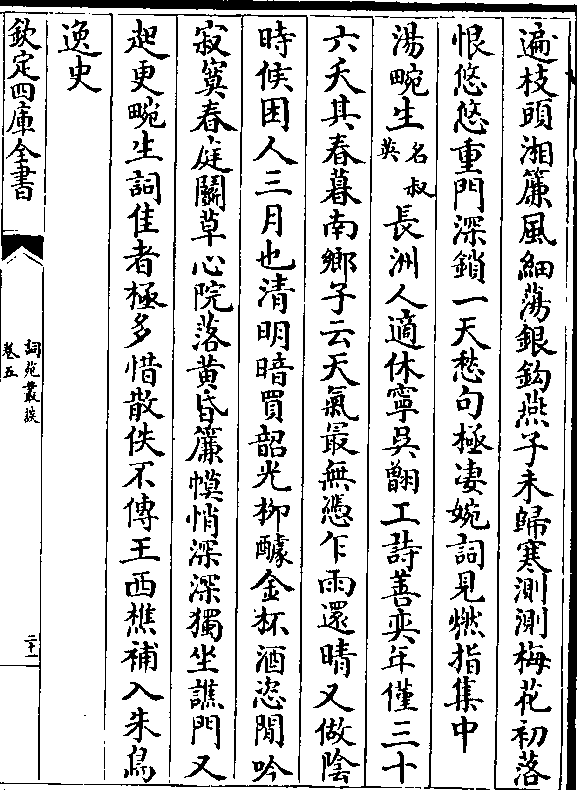 遍枝頭湘簾風細蕩銀鈎燕子未歸寒測測梅花初落
恨悠悠重門深鎖一天愁句極凄婉詞見燃指集中
湯畹生名叔英長洲人適休寧吳翽工詩善奕年僅三十
六夭其春暮南鄉子云天氣最無憑乍雨還晴又做陰
時候困人三月也清明暗買韶光柳醵金杯酒恣閒吟
寂寞春庭鬬草心院落黄昏簾幙悄深深獨坐譙門又
起更畹生詞佳者極多惜散佚不傳王西樵補入朱鳥
逸史
欽定四庫全書
詞苑叢談
卷五
二十一